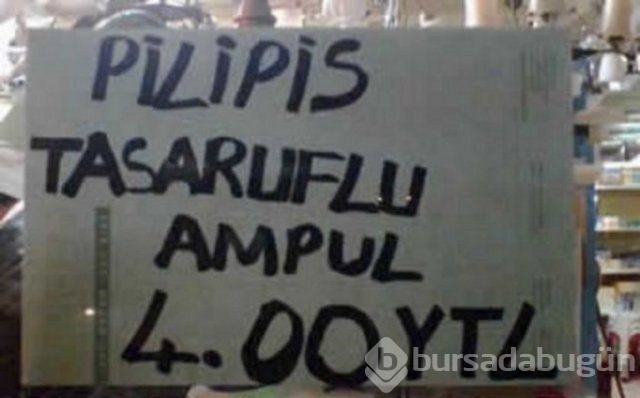 PİLİPİS
TASARUFLU
AMPUL
4.00YTL
bursadabugün